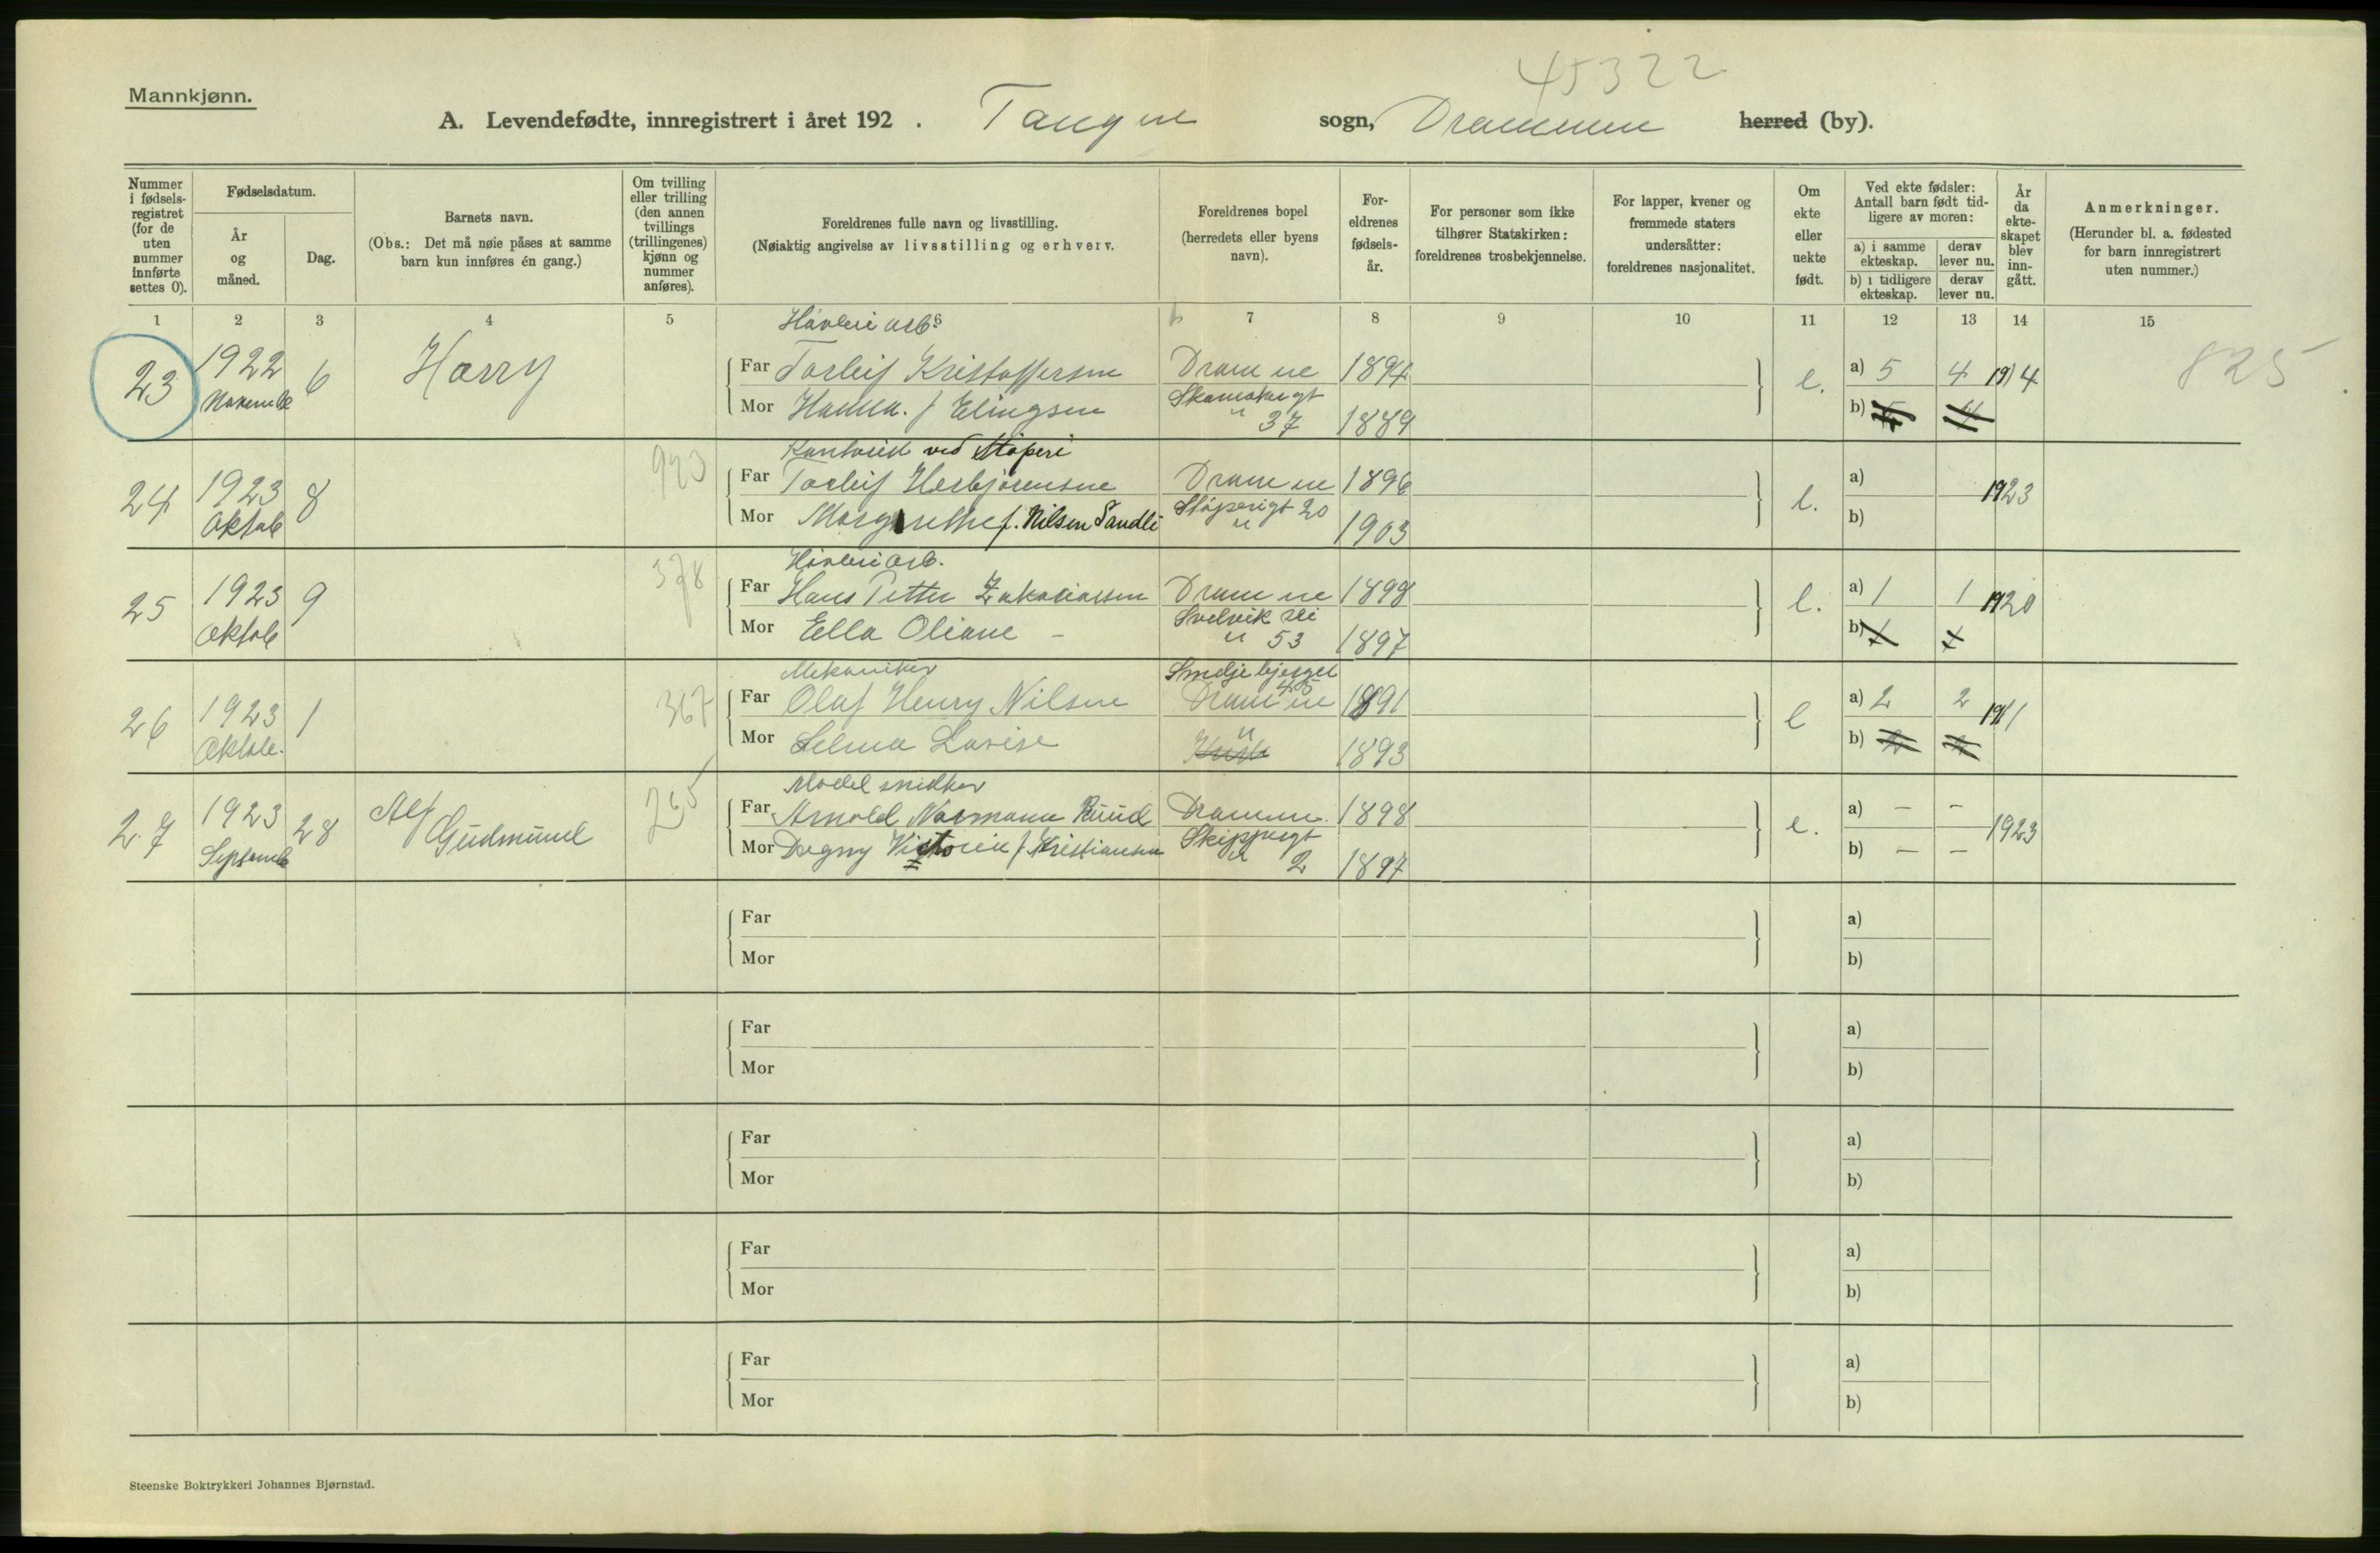 45322
Mannkjønn.
A. Levendefødte, innregistrert i året 192 . Tangen sogn, Drammen herred (by).
Nummer i fødselsregistret (for de uten nummer innførte settes 0).
Fødselsdatum.
År og måned.
Dag.
Barnets navn.
(Obs.: Det må nøie påses at samme barn kun innføres én gang.)
Om tvilling eller trilling (den annen tvillings (trillingenes) kjønn og nummer anføres).
Foreldrenes fulle navn og livsstilling.
(Nøiaktig angivelse av livsstilling og erhverv.
Foreldrenes bopel (herredets eller byens navn).
Foreldrenes fødselsår.
For personer som ikke tilhører Statskirken: foreldrenes trosbekjennelse.
For lapper, kvener og fremmede staters undersåtter: foreldrenes nasjonalitet.
Om ekte eller uekte født.
Ved ekte fødsler: Antall barn født tidligere av moren:
a) i samme ekteskap. derav lever nu.
b) i tidligere ekteskap. derav lever nu.
År da ekteskapet blev inngått.
Anmerkninger.
(Herunder bl. a. fødested for barn innregistrert uten nummer.)
1 2 3 4 5 6 7 8 9 10 11 12 13 14 15
Høvleri arb.
23 1922 6 Harry Far Torleif Kristoffersen Drammen 1894 e. a) 5 4 1914 825
Mor Hanna f Elingsen " 37 1889 b)
Kontorist ved Støperi
24 1923 Oktob 8 923 Far Torleif Herbjørensen Drammen 1896 e. a) 1923
Mor Margrethe f. Nilsen Sandli Støperigt 20 " 1903 b)
Høvleri arb.
25 1923 Oktob 9 378 Far Hans Petter Zakariassen Drammen 1898 e. a) 1 1 1920
Mor Ella Oliane - Svelvik vei " 53 1897 b) 1 1
Mekaniker Smedjebjerget 45
26 1923 Oktob. 1 367 Far Olaf Henry Nilsen Drammen 1891 e a) 2 2 1911
Mor Selma Lovise " 1893 b) 2 2
Model snidker
27 1923 Septemb 28 Alf Gudmund 265 Far Arnold Normann Ruud Drammen 1898 e. a) — — 1923
Mor Dagny Victoria f Kristiansen Skippergt " 2 1897 b) — —
Far a)
Mor b)
Far a)
Mor b)
Far a)
Mor b)
Far a)
Mor b)
Far a)
Mor b)
Steenske Boktrykkeri Johannes Bjørnstad.